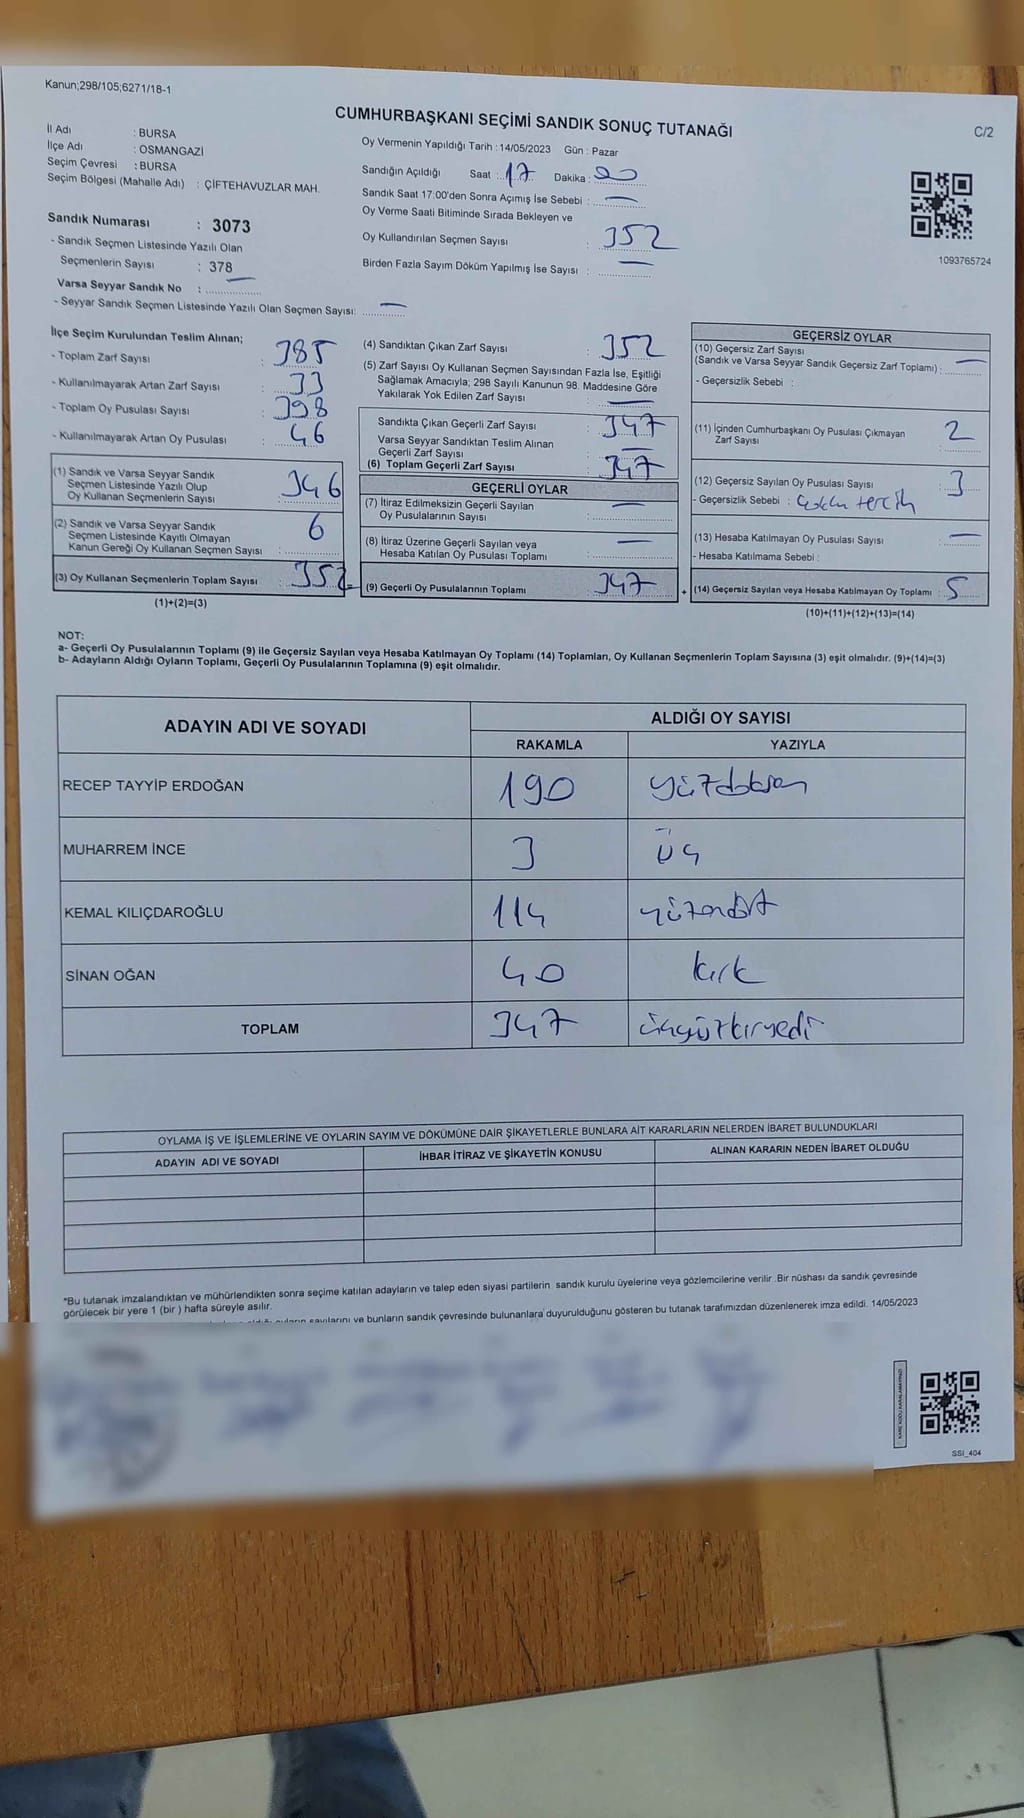 Kanun;298/105;6271/18-1
CUMHURBAŞKANI SEÇİMİ SANDIK SONUÇ TUTANAĞI
C/2
İl Adı : BURSA
İlçe Adı : OSMANGAZİ
Seçim Çevresi : BURSA
Seçim Bölgesi (Mahalle Adı) : ÇİFTEHAVUZLAR MAH.
Oy Vermenin Yapıldığı Tarih :14/05/2023 Gün : Pazar
Sandığın Açıldığı Saat : 17 Dakika : 00
Sandık Saat 17:00'den Sonra Açımış İse Sebebi : —
Oy Verme Saati Bitiminde Sırada Bekleyen ve
Oy Kullandırılan Seçmen Sayısı : 352
Birden Fazla Sayım Döküm Yapılmış İse Sayısı : —
1093765724
Sandık Numarası : 3073
- Sandık Seçmen Listesinde Yazılı Olan
Seçmenlerin Sayısı : 378
Varsa Seyyar Sandık No : —
- Seyyar Sandık Seçmen Listesinde Yazılı Olan Seçmen Sayısı: —
İlçe Seçim Kurulundan Teslim Alınan;
- Toplam Zarf Sayısı : 385
- Kullanılmayarak Artan Zarf Sayısı : 33
- Toplam Oy Pusulası Sayısı : 398
- Kullanılmayarak Artan Oy Pusulası : 46
(1) Sandık ve Varsa Seyyar Sandık
Seçmen Listesinde Yazılı Olup
Oy Kullanan Seçmenlerin Sayısı : 346
(2) Sandık ve Varsa Seyyar Sandık
Seçmen Listesinde Kayıtlı Olmayan
Kanun Gereği Oy Kullanan Seçmen Sayısı : 6
(3) Oy Kullanan Seçmenlerin Toplam Sayısı : 352
(1)+(2)=(3)
(4) Sandıktan Çıkan Zarf Sayısı : 352
(5) Zarf Sayısı Oy Kullanan Seçmen Sayısından Fazla İse, Eşitliği
Sağlamak Amacıyla; 298 Sayılı Kanunun 98. Maddesine Göre
Yakılarak Yok Edilen Zarf Sayısı : —
Sandıkta Çıkan Geçerli Zarf Sayısı : 347
Varsa Seyyar Sandıktan Teslim Alınan
Geçerli Zarf Sayısı : —
(6) Toplam Geçerli Zarf Sayısı : 347
GEÇERLİ OYLAR
(7) İtiraz Edilmeksizin Geçerli Sayılan
Oy Pusulalarının Sayısı : —
(8) İtiraz Üzerine Geçerli Sayılan veya
Hesaba Katılan Oy Pusulası Toplamı : —
(9) Geçerli Oy Pusulalarının Toplamı : 347
+
GEÇERSİZ OYLAR
(10) Geçersiz Zarf Sayısı
(Sandık ve Varsa Seyyar Sandık Geçersiz Zarf Toplamı) : —
- Geçersizlik Sebebi :
(11) İçinden Cumhurbaşkanı Oy Pusulası Çıkmayan
Zarf Sayısı : 2
(12) Geçersiz Sayılan Oy Pusulası Sayısı : 3
- Geçersizlik Sebebi : çoklu tercih
(13) Hesaba Katılmayan Oy Pusulası Sayısı : —
- Hesaba Katılmama Sebebi :
(14) Geçersiz Sayılan veya Hesaba Katılmayan Oy Toplamı : 5
(10)+(11)+(12)+(13)=(14)
NOT:
a- Geçerli Oy Pusulalarının Toplamı (9) ile Geçersiz Sayılan veya Hesaba Katılmayan Oy Toplamı (14) Toplamları, Oy Kullanan Seçmenlerin Toplam Sayısına (3) eşit olmalıdır. (9)+(14)=(3)
b- Adayların Aldığı Oyların Toplamı, Geçerli Oy Pusulalarının Toplamına (9) eşit olmalıdır.
ADAYIN ADI VE SOYADI ALDIĞI OY SAYISI
RAKAMLA YAZIYLA
RECEP TAYYİP ERDOĞAN 190 yüzdoksan
MUHARREM İNCE 3 üç
KEMAL KILIÇDAROĞLU 114 yüzondört
SİNAN OĞAN 40 kırk
TOPLAM 347 üçyüzkıryedi
OYLAMA İŞ VE İŞLEMLERİNE VE OYLARIN SAYIM VE DÖKÜMÜNE DAİR ŞİKAYETLERLE BUNLARA AİT KARARLARIN NELERDEN İBARET BULUNDUKLARI
ADAYIN ADI VE SOYADI İHBAR İTİRAZ VE ŞİKAYETİN KONUSU ALINAN KARARIN NEDEN İBARET OLDUĞU
*Bu tutanak imzalandıktan ve mühürlendikten sonra seçime katılan adayların ve talep eden siyasi partilerin sandık kurulu üyelerine veya gözlemcilerine verilir .Bir nüshası da sandık çevresinde
görülecek bir yere 1 (bir ) hafta süreyle asılır.
sayılarını ve bunların sandık çevresinde bulunanlara duyurulduğunu gösteren bu tutanak tarafımızdan düzenlenerek imza edildi. 14/05/2023
SSI_404